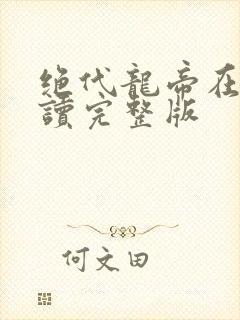 绝代龍帝在
讀完整版
何文田